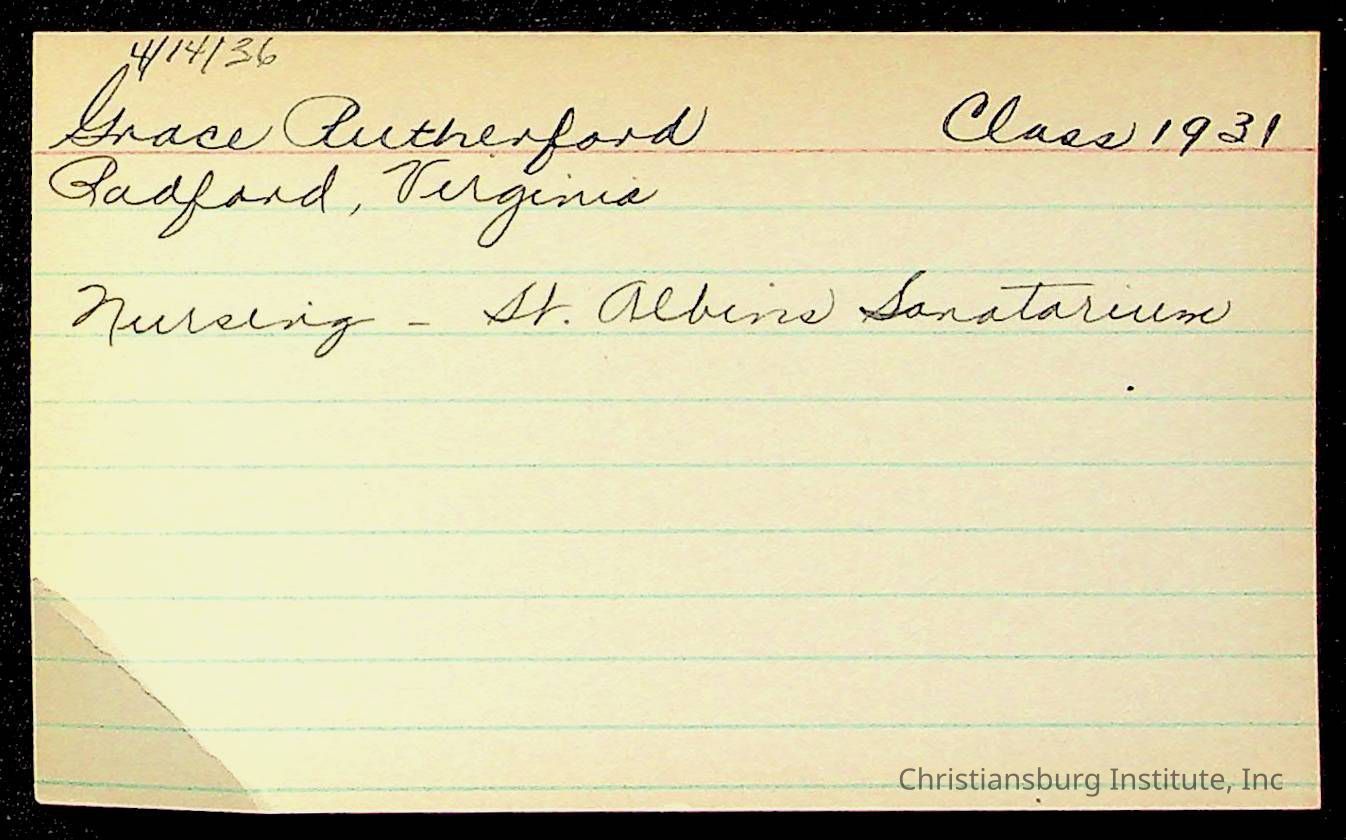 4/14/36
Grace Rutherford Class 1931
Radford, Virginia
Nursing - St. Albins Sanatarium
Christiansburg Institute, Inc